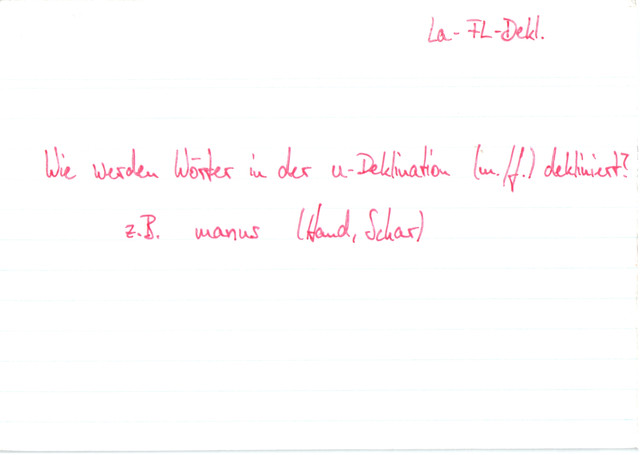 La-FL-Dekl.
Wie werden Wörter in der u-Deklination (m./f.) dekliniert?
z.B. manus (Hand, Schar)